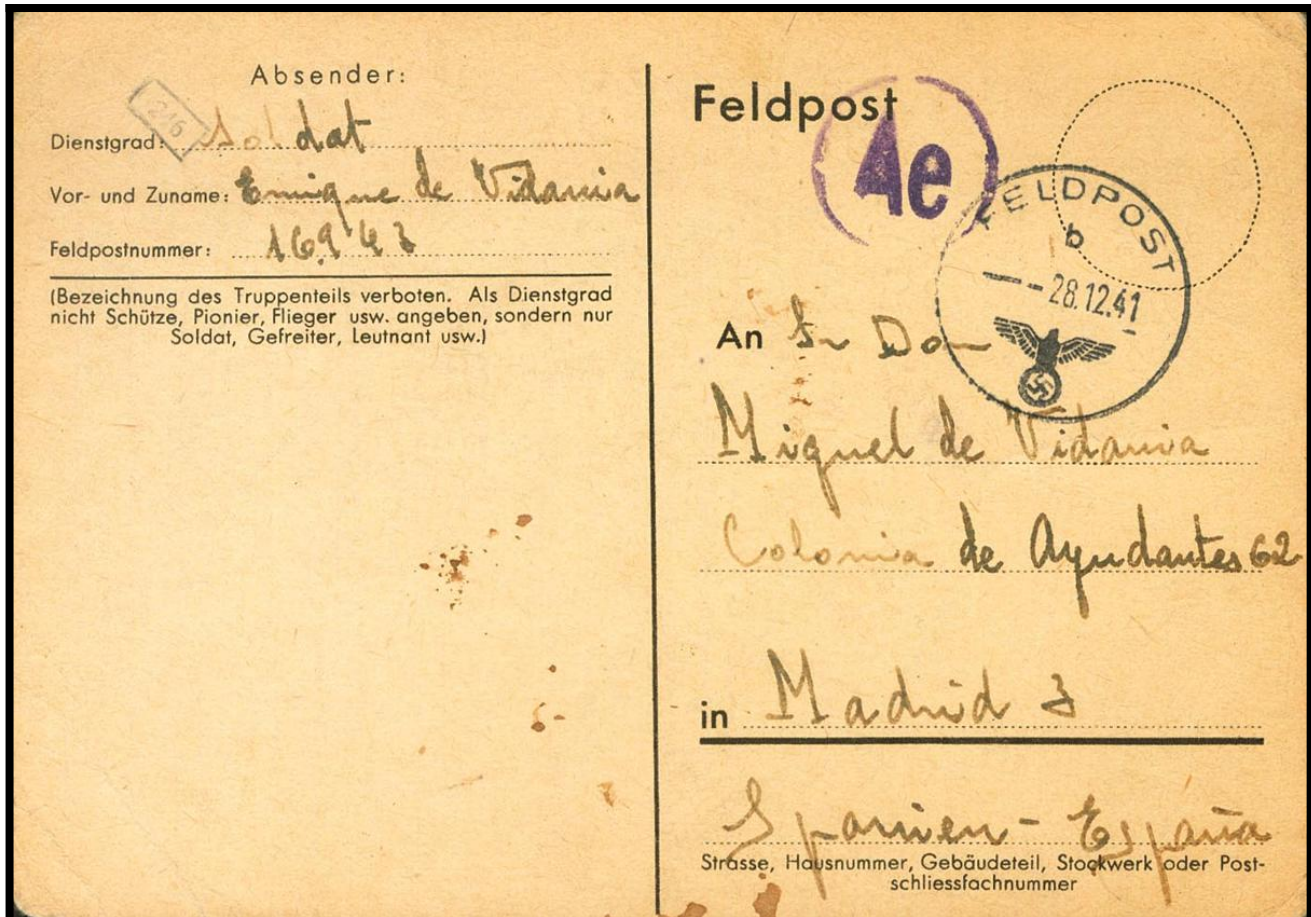 Absender:
246
Dienstgrad: Soldat
Vor- und Zuname: Enrique de Vidania
Feldpostnummer: 16943
(Bezeichnung des Truppenteils verboten. Als Dienstgrad
nicht Schütze, Pionier, Flieger usw. angeben, sondern nur
Soldat, Gefreiter, Leutnant usw.)
Feldpost
Ae
FELDPOST
b
28.12.41
An Sr Don
Miguel de Vidania
Colonia de Ayudantes 62
in Madrid 3
Spanien - España
Strasse, Hausnummer, Gebäudeteil, Stockwerk oder Post-
schliessfachnummer